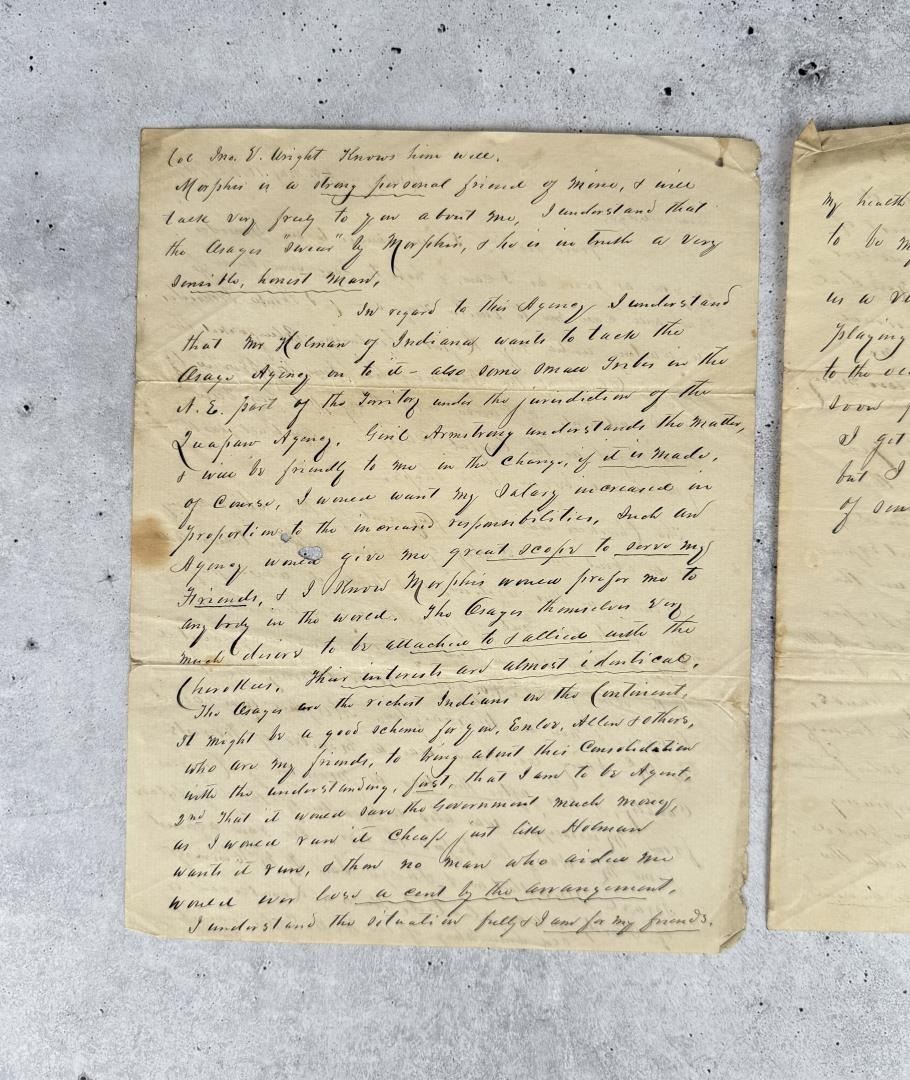 Col Jno. V. Wright Knows him well.
Morphis is a strong personal friend of mine, & will
talk very freely to you about me, I understand that
the Osages "swear" by Morphis, & he is in truth a very
sensible, honest man.
In regard to this Agency I understand
that Mr Holman of Indiana wants to tack the
Osage Agency on to it - also some small Tribes in the
N. E. part of the Territory under the jurisdiction of the
Quapaw Agency. Genl Armstrong understands the matter,
& will be friendly to me in the change, if it is made.
of course, I would want my Salary increased in
proportion to the increased responsibilities, Such an
Agency would give me great scope to serve my
Friends, & I Know Morphis would prefer me to
any body in the world. The Osages themselves very
much desire to be attached to & allied with the
Cherokees. Their interests are almost identical.
The Osages are the richest Indians on the Continent.
It might be a good scheme for you, Enloe, Allen & others,
who are my friends, to bring about this Consolidation
with the understanding, first, that I am to be Agent,
2nd That it would save the Government much money,
as I would run it cheap just like Holman
wants it run, & then no man who aided me
would ever lose a cent by the arrangement.
I understand the situation fully & I am for my friends.
My health
to be
us a
playing
to the
soon
I get
but I
of